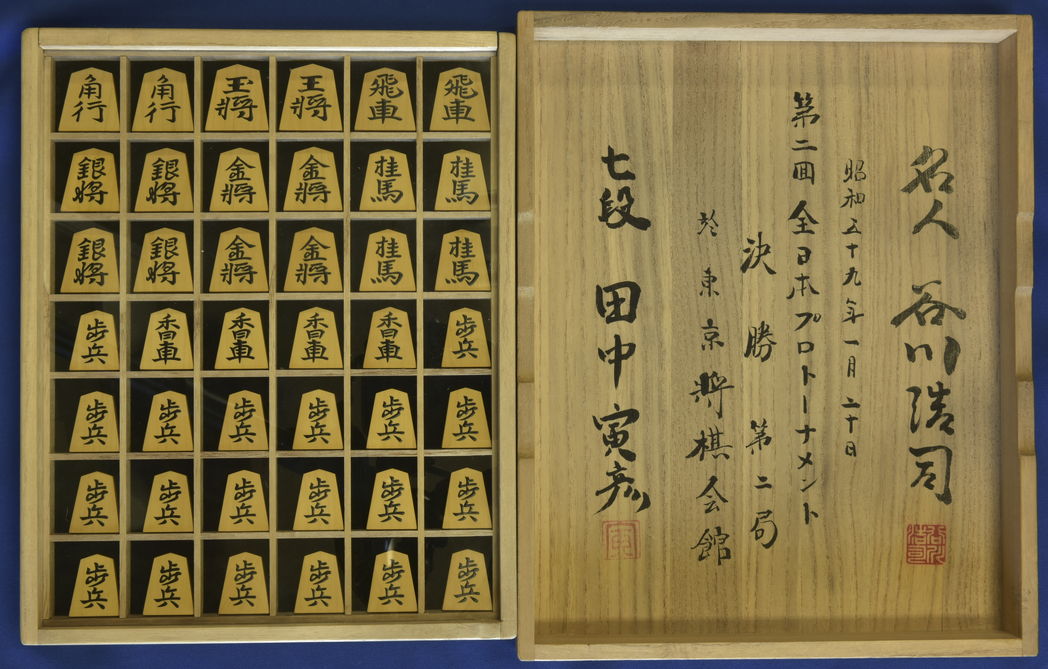 角行 角行 玉將 王將 飛車 飛車
銀將 銀將 金將 金將 桂馬 桂馬
銀將 銀將 金將 金將 桂馬 桂馬
歩兵 香車 香車 香車 香車 歩兵
歩兵 歩兵 歩兵 歩兵 歩兵 歩兵
歩兵 歩兵 歩兵 歩兵 歩兵 歩兵
歩兵 歩兵 歩兵 歩兵 歩兵 歩兵
名人 谷川浩司
谷川浩司
昭和五十九年一月二十日
第二回全日本プロトーナメント
決勝 第二局
於東京將棋会館
七段 田中寅彦
寅